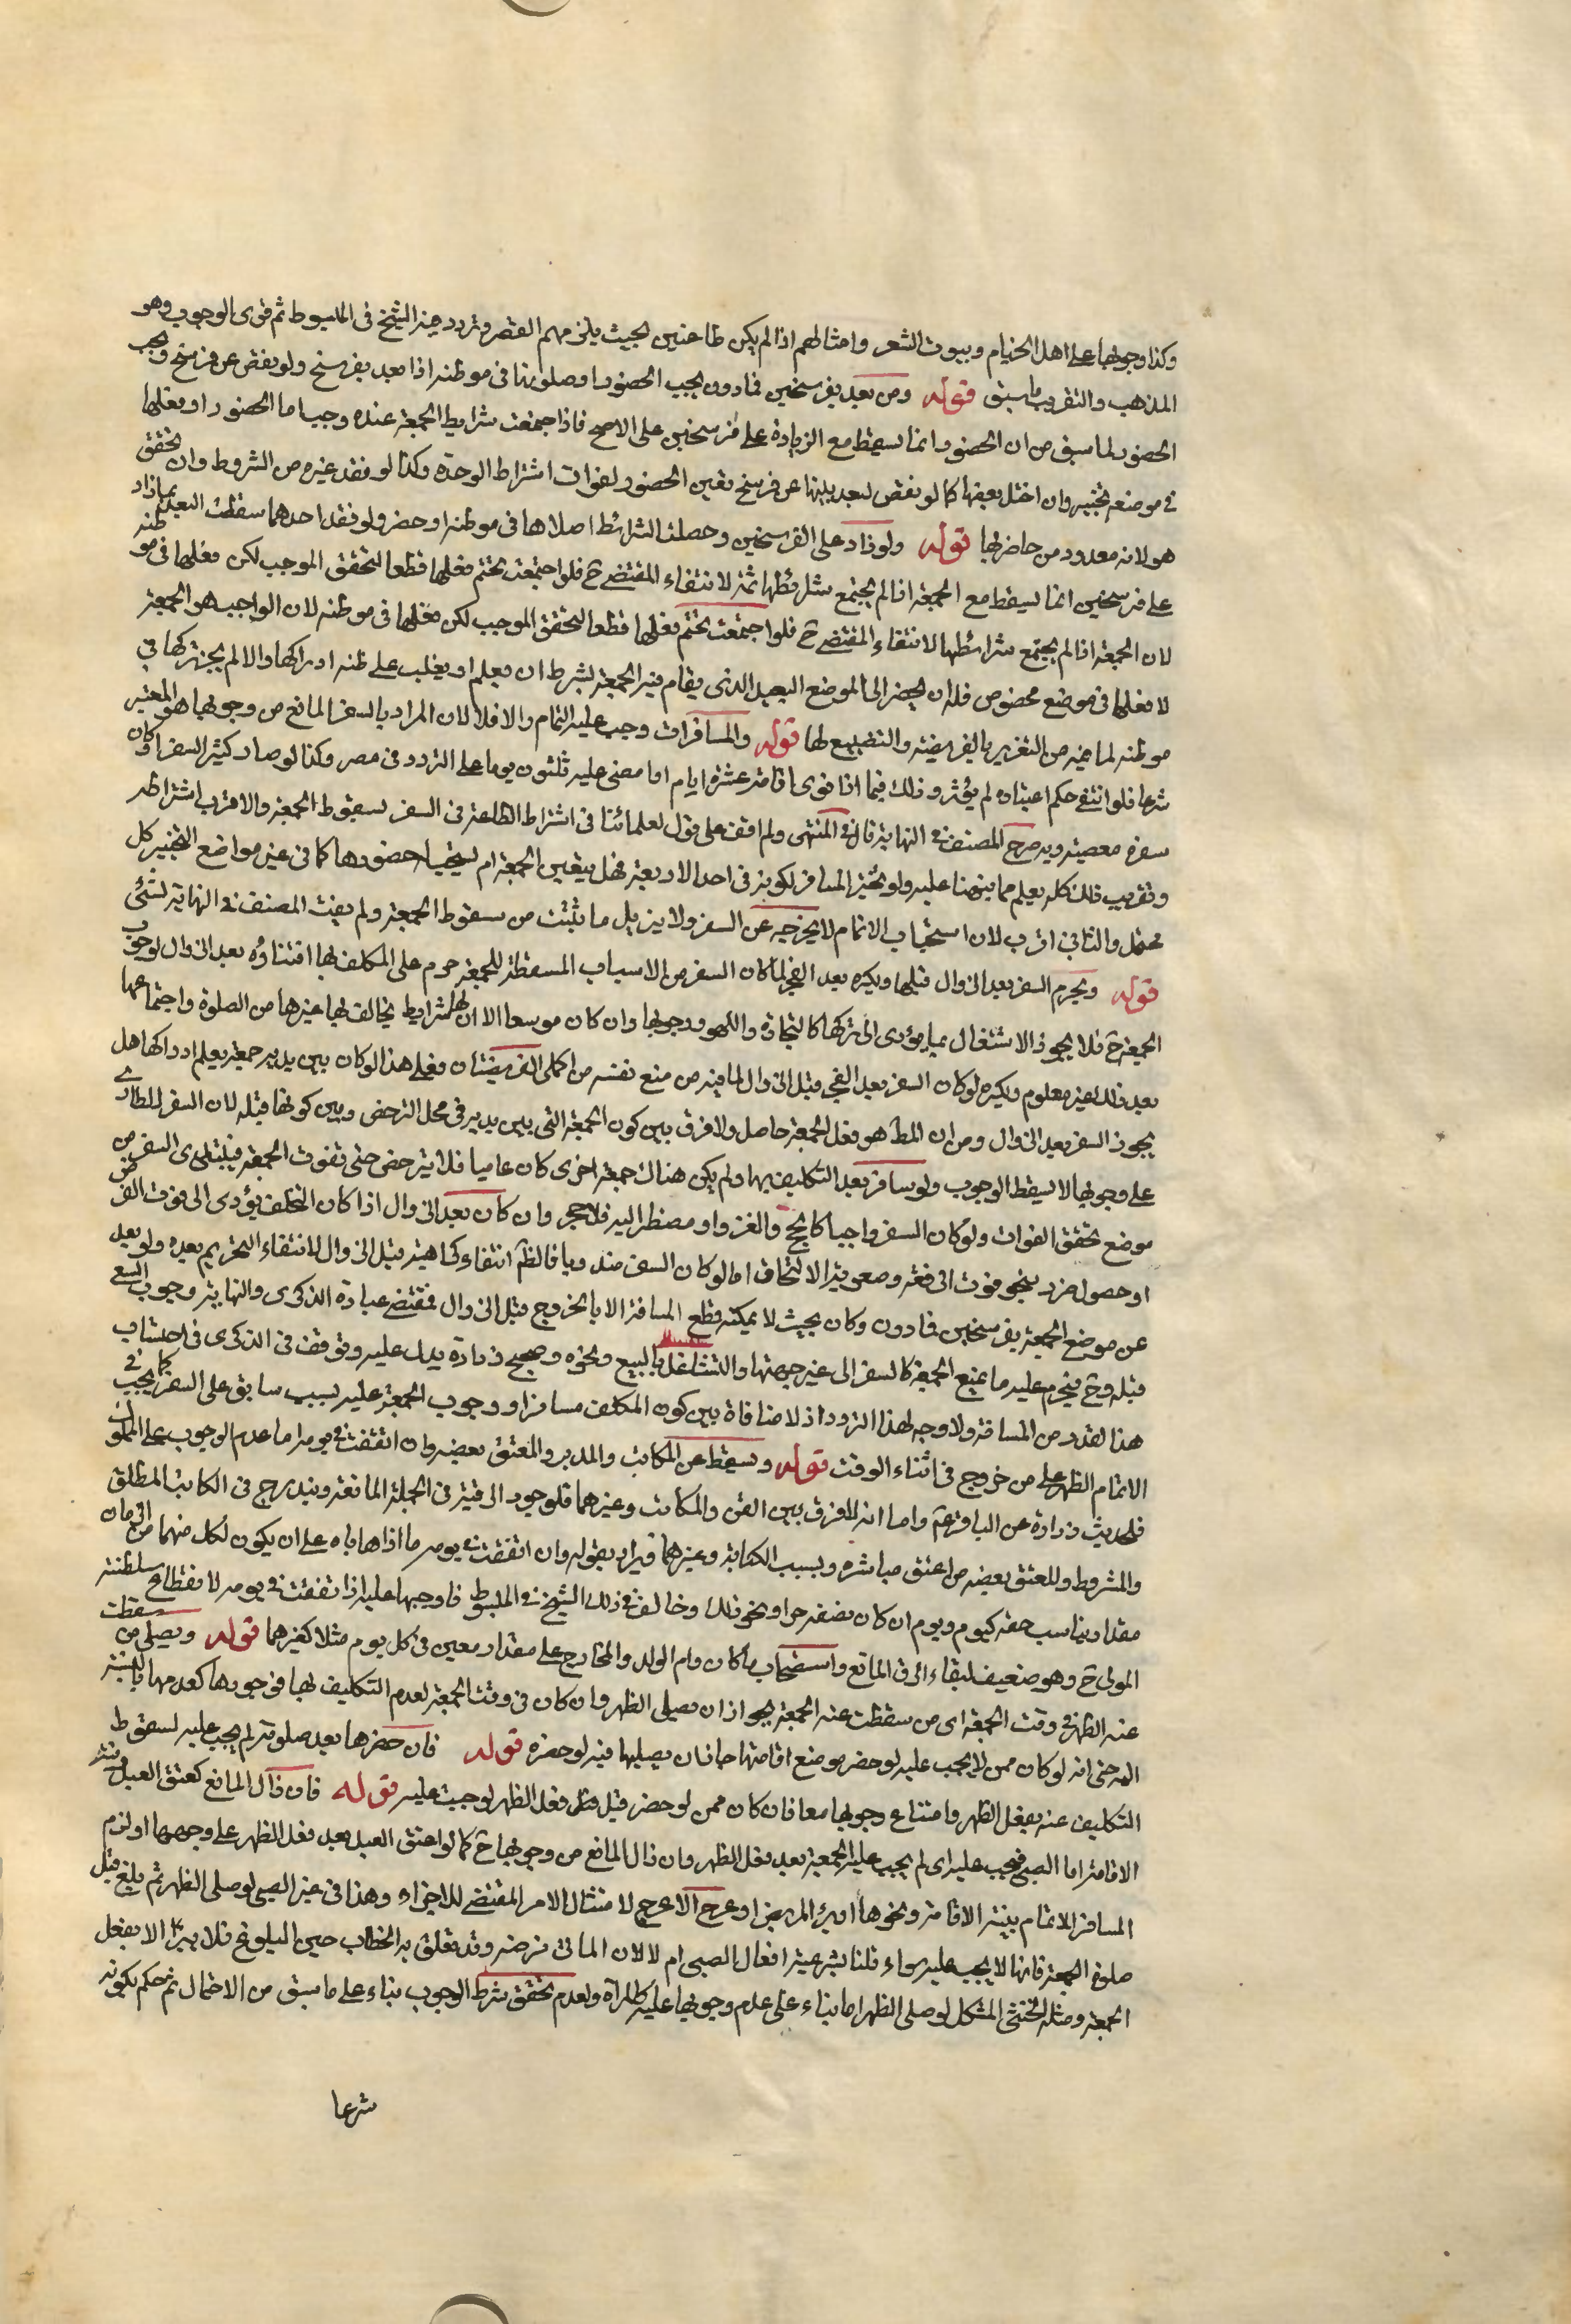 وكذا وجوبها على اهل الخيام وبيوت الشعر وامثالهم اذا لم يكن ظاعنين بحيث يلزمهم القصر وتردد فيه الشيخ في المبسوط ثم قوى الوجوب وهو
المذهب والتقريب ما سبق قوله ومن بعد بفرسخين فما دون يجب الحضور او صلوتها في موطنه اذا بعد بفرسخ ولو نقص عن فرسخ فيجب
الحضور لما سبق من ان الحضور انما يسقط مع الزيادة على فرسخين على الاصح فاذا اجتمعت شرايط الجمعة عنده وجب اما الحضور او فعلها
في موضعه تخيير وان اختل بعضها كما لو نقص لبعد بينها عن فرسخ تعين الحضور لفوات اشتراط الوحدة وكذا لو فقد غيره من الشروط وان تحقق
هو لانه معدود من حاضريها قوله ولو زاد على الفرسخين وحصلت الشرائط صلاها في موطنه او حضر ولو فقد احدهما سقطت البعد بما زاد
على فرسخين انما يسقط مع الجمعة اذا لم يجتمع شرائطها ثمة لانتفاء المقتضي ح فلو اجتمعت تحتم فعلها قطعا لتحقق الموجب لكن فعلها في موطنه
لان الجمعة اذا لم يجتمع شرائطها لانتفاء المقتضي ح فلو اجتمعت تحتم فعلها قطعا لتحقق الموجب لكن فعلها في موطنه لان الواجب هو الجمعة
لا فعلها في موضع مخصوص فله ان يحضر الى الموضع البعيد الذي يقام فيه الجمعة بشرط ان يعلم او يغلب على ظنه ادراكها والا لم يجز تركها في
موطنه لما فيه من التغرير بالفريضة والتضييع لها قوله والمسافر ان وجب عليه التمام والا فلا لان المراد بالسفر المانع من وجوبها هو المعتبر
شرعا فلو انتفى حكم اعتباره لم يؤثر وذلك فيما اذا نوى اقامة عشرة ايام او مضى عليه ثلثون يوما على التردد في مصر وكذا لو صار كثير السفر او كان
سفره معصية وبه صرح المصنف في النهاية قال في المنتهى ولم اقف على قول لعلمائنا في اشتراط الطاعة في السفر لسقوط الجمعة والاقرب اشتراطه
وتقريب ذلك كله يعلم مما نبهنا عليه ولو تخير المسافر لكونه في احد الاربعة فهل يتعين الجمعة ام يستحب له حضورها كما في غير مواضع التخيير كل
محتمل والثاني اقرب لان استحباب الاتمام لا يخرجه عن السفر ولا يزيل ما يثبت من سقوط الجمعة ولم يفت المصنف في النهاية بشئ
قوله ويحرم السفر بعد الزوال قبلها ويكره بعد الفجر لما كان السفر من الاسباب المسقطة للجمعة حرم على المكلف بها انشاؤه بعد الزوال لوجوب
الجمعة ح فلا يجوز الاشتغال بما يؤدى الى تركها كالتجارة واللهو ووجوبها وان كان موسعا الا ان لها شرايط يخالف بها غيرها من الصلوة واجتماعها
بعد ذلك غير معلوم ويكره لو كان السفر بعد الفجر قبل الزوال لما فيه من منع نفسه من اكمل الفريضتان فعلى هذا لو كان بين يديه جمعة يعلم ادراكها هل
يجوز السفر بعد الزوال ومن ان المط هو فعل الجمعة حاصل ولا فرق بين كون الجمعة التى بين يديه في محل الترخص وبين كونها قبله لان السفر الطارى
على وجوبها لا يسقط الوجوب ولو سافر بعد التكليف بها ولم يكن هناك جمعة اخرى كان عاصيا فلا يترخص حتى تفوت الجمعة فيبتدى السفر من
موضع تحقق الفوات ولو كان السفر واجبا كالحج والغزو او مضطرا اليه فلا حجر وان كان بعد الزوال اذا كان التخلف يؤدى الى فوت الغرض
او حصول ضرر بنحو فوت الرفقة وصعوبة الالتحاق اما لو كان السفر مندوبا فالظ انتفاء كراهيته قبل الزوال لانتفاء التحريم بعده ولو بعد
عن موضع الجمعة بفرسخين فما دون وكان بحيث لا يمكنه قطع المسافة الا بالخروج قبل الزوال فمقتضى عبارة الذكرى والنهاية وجوب السعى
قبله وح فيحرم عليه ما يمنع الجمعة كالسفر الى غير جهتها والتشاغل بالبيع ونحوه وصحيح زرارة يدل عليه وتوقف في الذكرى في احتساب
هذا لقدر من المسافة ولا وجه لهذا التردد اذ لا منافاة بين كون المكلف مسافرا ووجوب الجمعة عليه بسبب سابق على السفر كما يجب
الاتمام الظهر على من خروج في اثناء الوقت قوله ويسقط عن المكاتب والمدبر والمعتق بعضه وان اتفقت في يومه اما عدم الوجوب على المملوك
فلحديث زرارة عن الباقر ع واما انه لا فرق بين القن والمكاتب وغيرهما فلوجود الرقية في الجملة المانعة ويندرج في الكاتب المطلق
والمشروط وللمعتق بعضه من اعتق مباشره وبسبب الكتابة وغيرهما ويراد بقوله وان اتفقت في يومه ما اذا هاباه على ان يكون لكل منهما من الزمان
مقدار يناسب حقه كيوم ويوم ان كان نصفه حرا ونحو ذلك وخالف في ذلك الشيخ في المبسوط فاوجبها عليه اذا اتفقت في يومه لانقطاع سلطنة
المولى ح وهو ضعيف لبقاء الرق المانع واستصحاب ما كان وام الولد والمخارج على مقدار معين في كل يوم مثلا كغيرهما قوله ويصلى من سقطت
عنه الظهر في وقت الجمعة اى من سقطت عنه الجمعة يجوز ان يصلى الظهر وان كان في وقت الجمعة لعدم التكليف بها فوجودها كعدمها بالنسبة
اليه حتى انه لو كان ممن لا يجب عليه لو حضر موضع اقامتها جاز ان يصليها فيه لو حضره قوله فان حضرها بعد صلوته لم يجب عليه لسقوط
التكليف عنه بفعل الظهر وامتناع وجوبهما معا فان كان ممن لو حضر قبل فعل الظهر لوجبت عليه قوله فان زال المانع كعتق العبد ونية
الاقامة اما الصبي فيجب عليه اى لم يجب عليه الجمعة بعد فعل الظهر وان زال المانع من وجوبها ح كما لو اعتق العبد بعد فعل الظهر على وجهها او لزم
المسافر الاتمام بنية الاقامة ونحوها او برئ المريض او عرج الاعرج لامتثال الامر المقتضى للاجزاء وهذا في غير الصبي لو صلى الظهر ثم بلغ قبل
صلوة الجمعة فانها لا يجب عليه سواء قلنا بشرعية افعال الصبى ام لا لان الماتى فرضه وقد تعلق به الخطاب حين البلوغ فلا يبرأ الا بفعل
الجمعة ومثله الخنثى المشكل لو صلى الظهر اما بناء على عدم وجوبها عليه كالمرأة ولعدم تحقق شرط الوجوب بناء على ما سبق من الاحتمال ثم حكم بكونه
شرعا